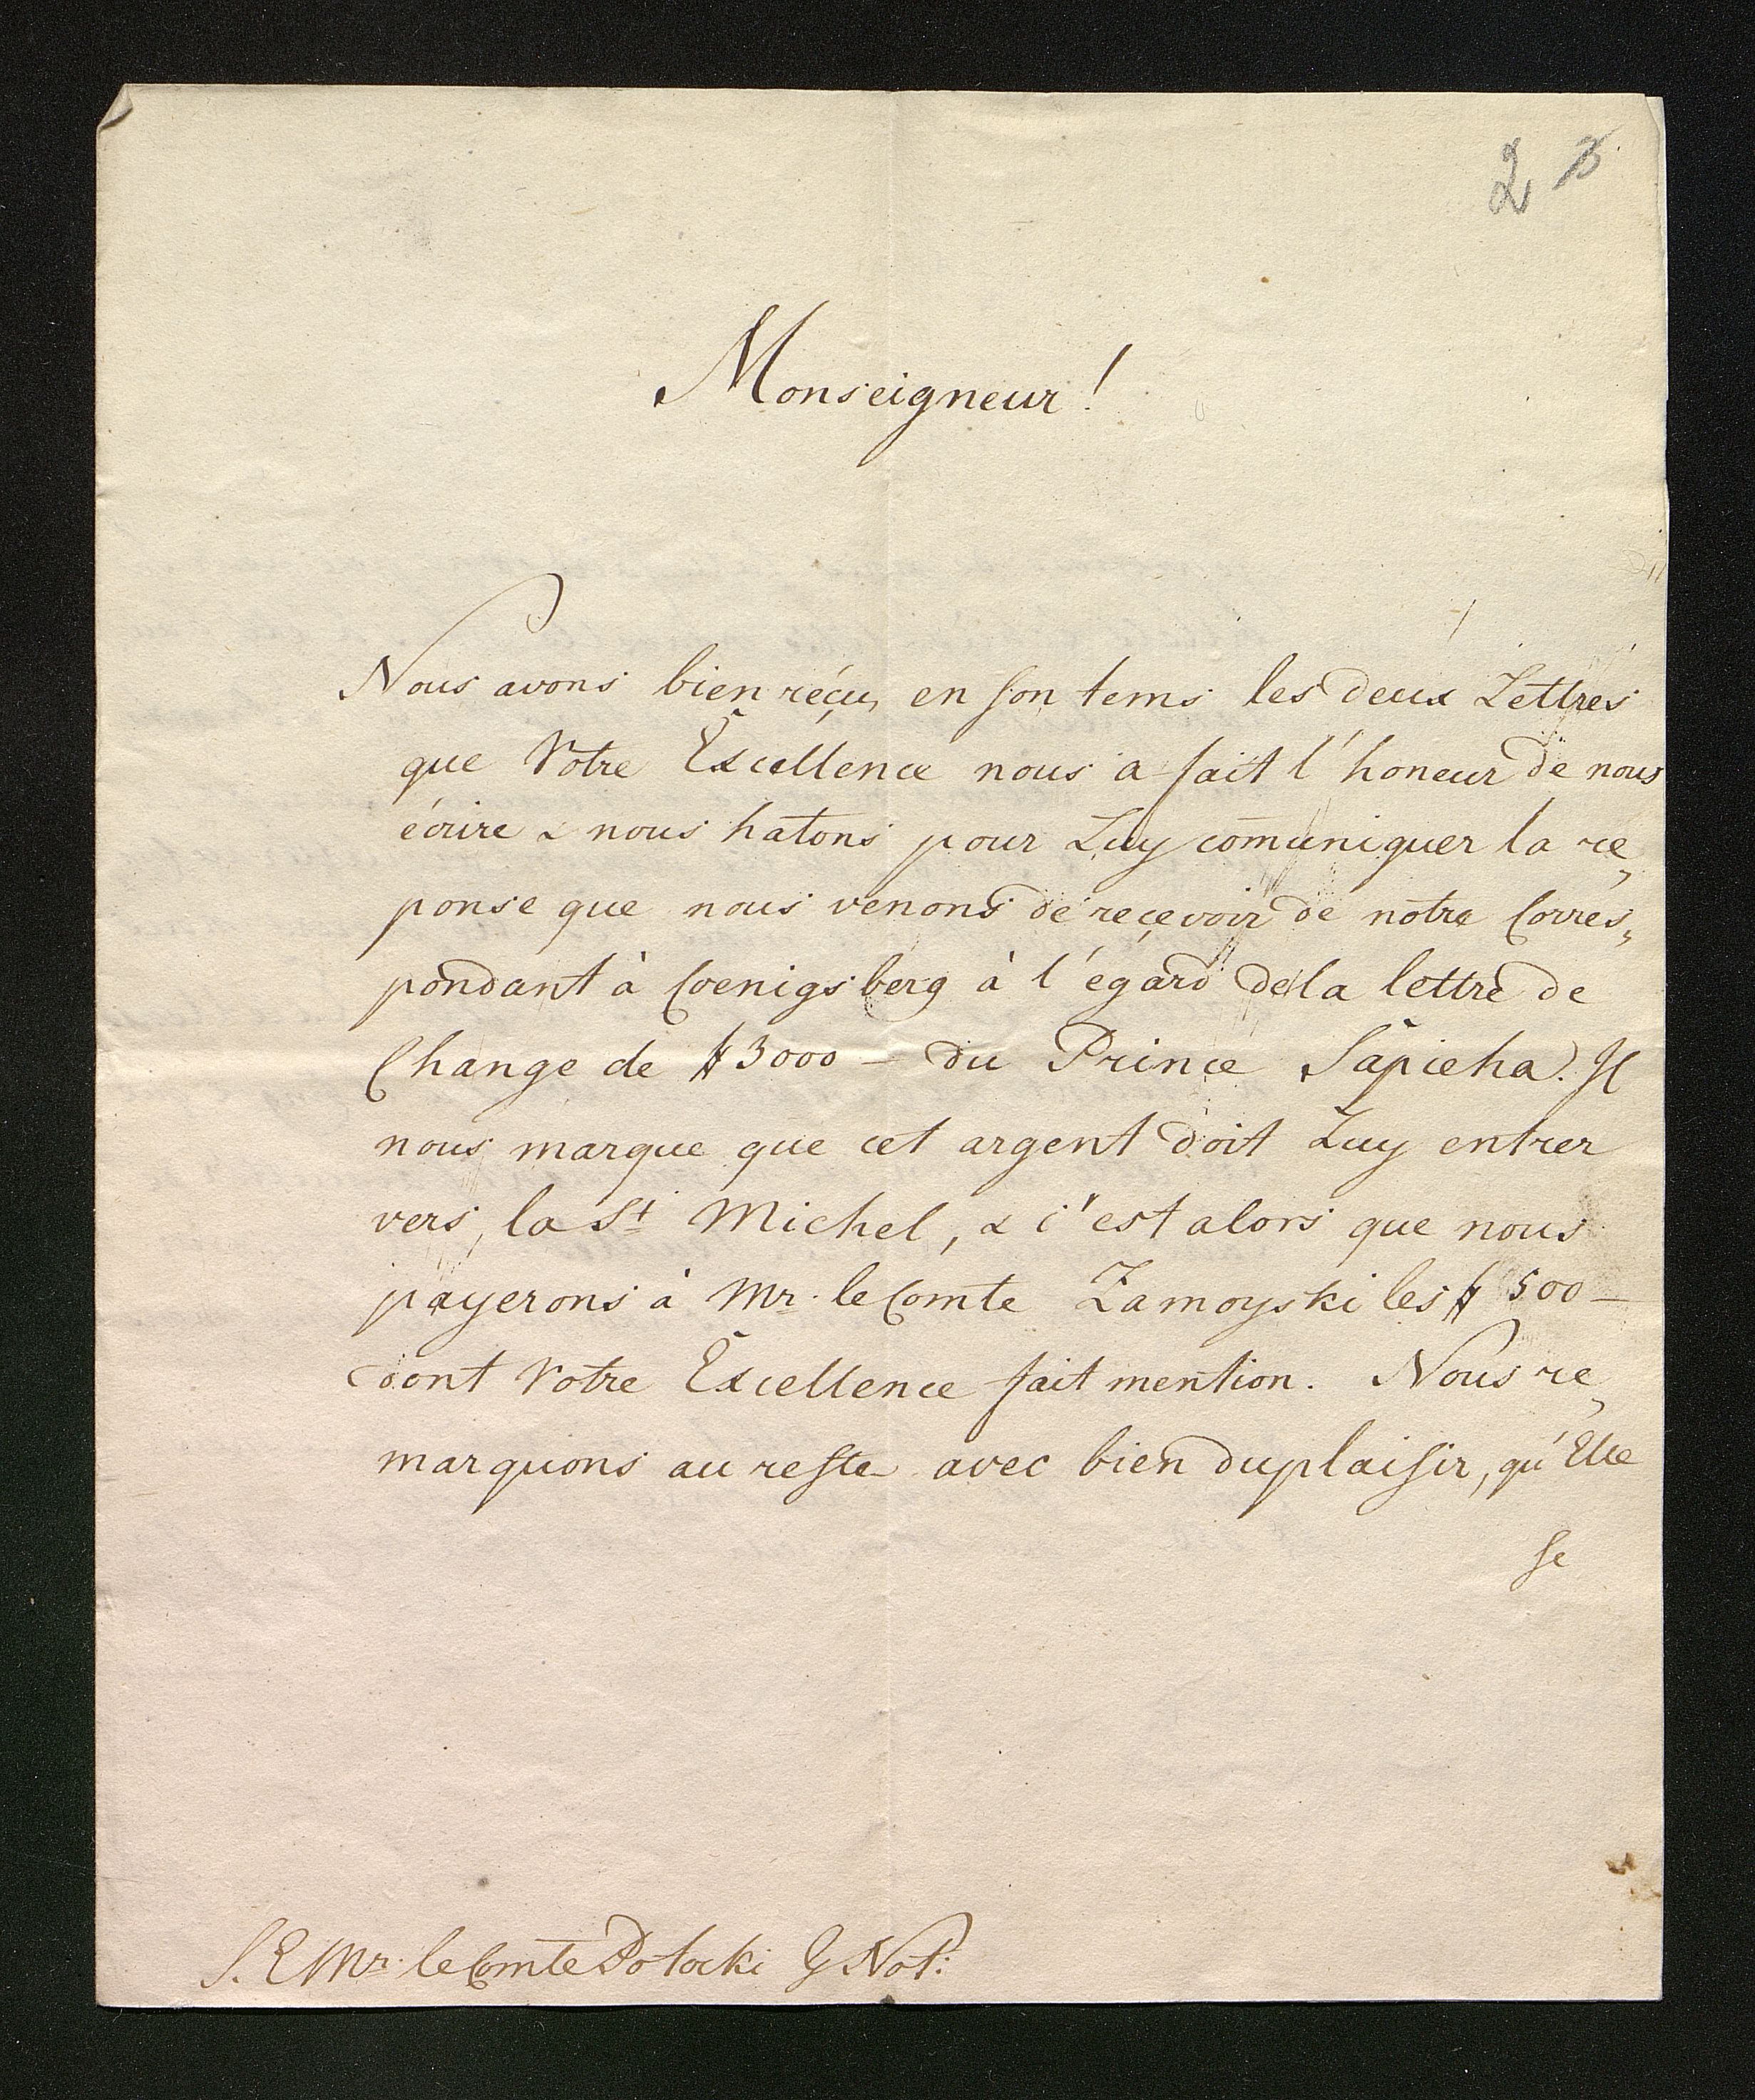 2
Monseigneur!
Nous avons bien réçu, en son tems les deux Lettres
que Votre Excellence nous a fait l'honeur de nous
écrire & nous hatons pour Luy com̄uniquer la re„
ponse que nous venons de reçevoir de nôtre Corres„
pondant à Coenigsberg à l'égard de la lettre de
Change de # 3000 – du Prince Sapieha. Il
nous marque que cet argent doit Luy entrer
vers la St Michel, & c'est alors que nous
payerons à Mr. le Comte Zamoyski les # 500 –
dont Votre Excellence fait mention. Nous re„
marquons au reste avec bien du plaisir, qu'Elle
se
S. E Mr. le Comte Potocki G Not: